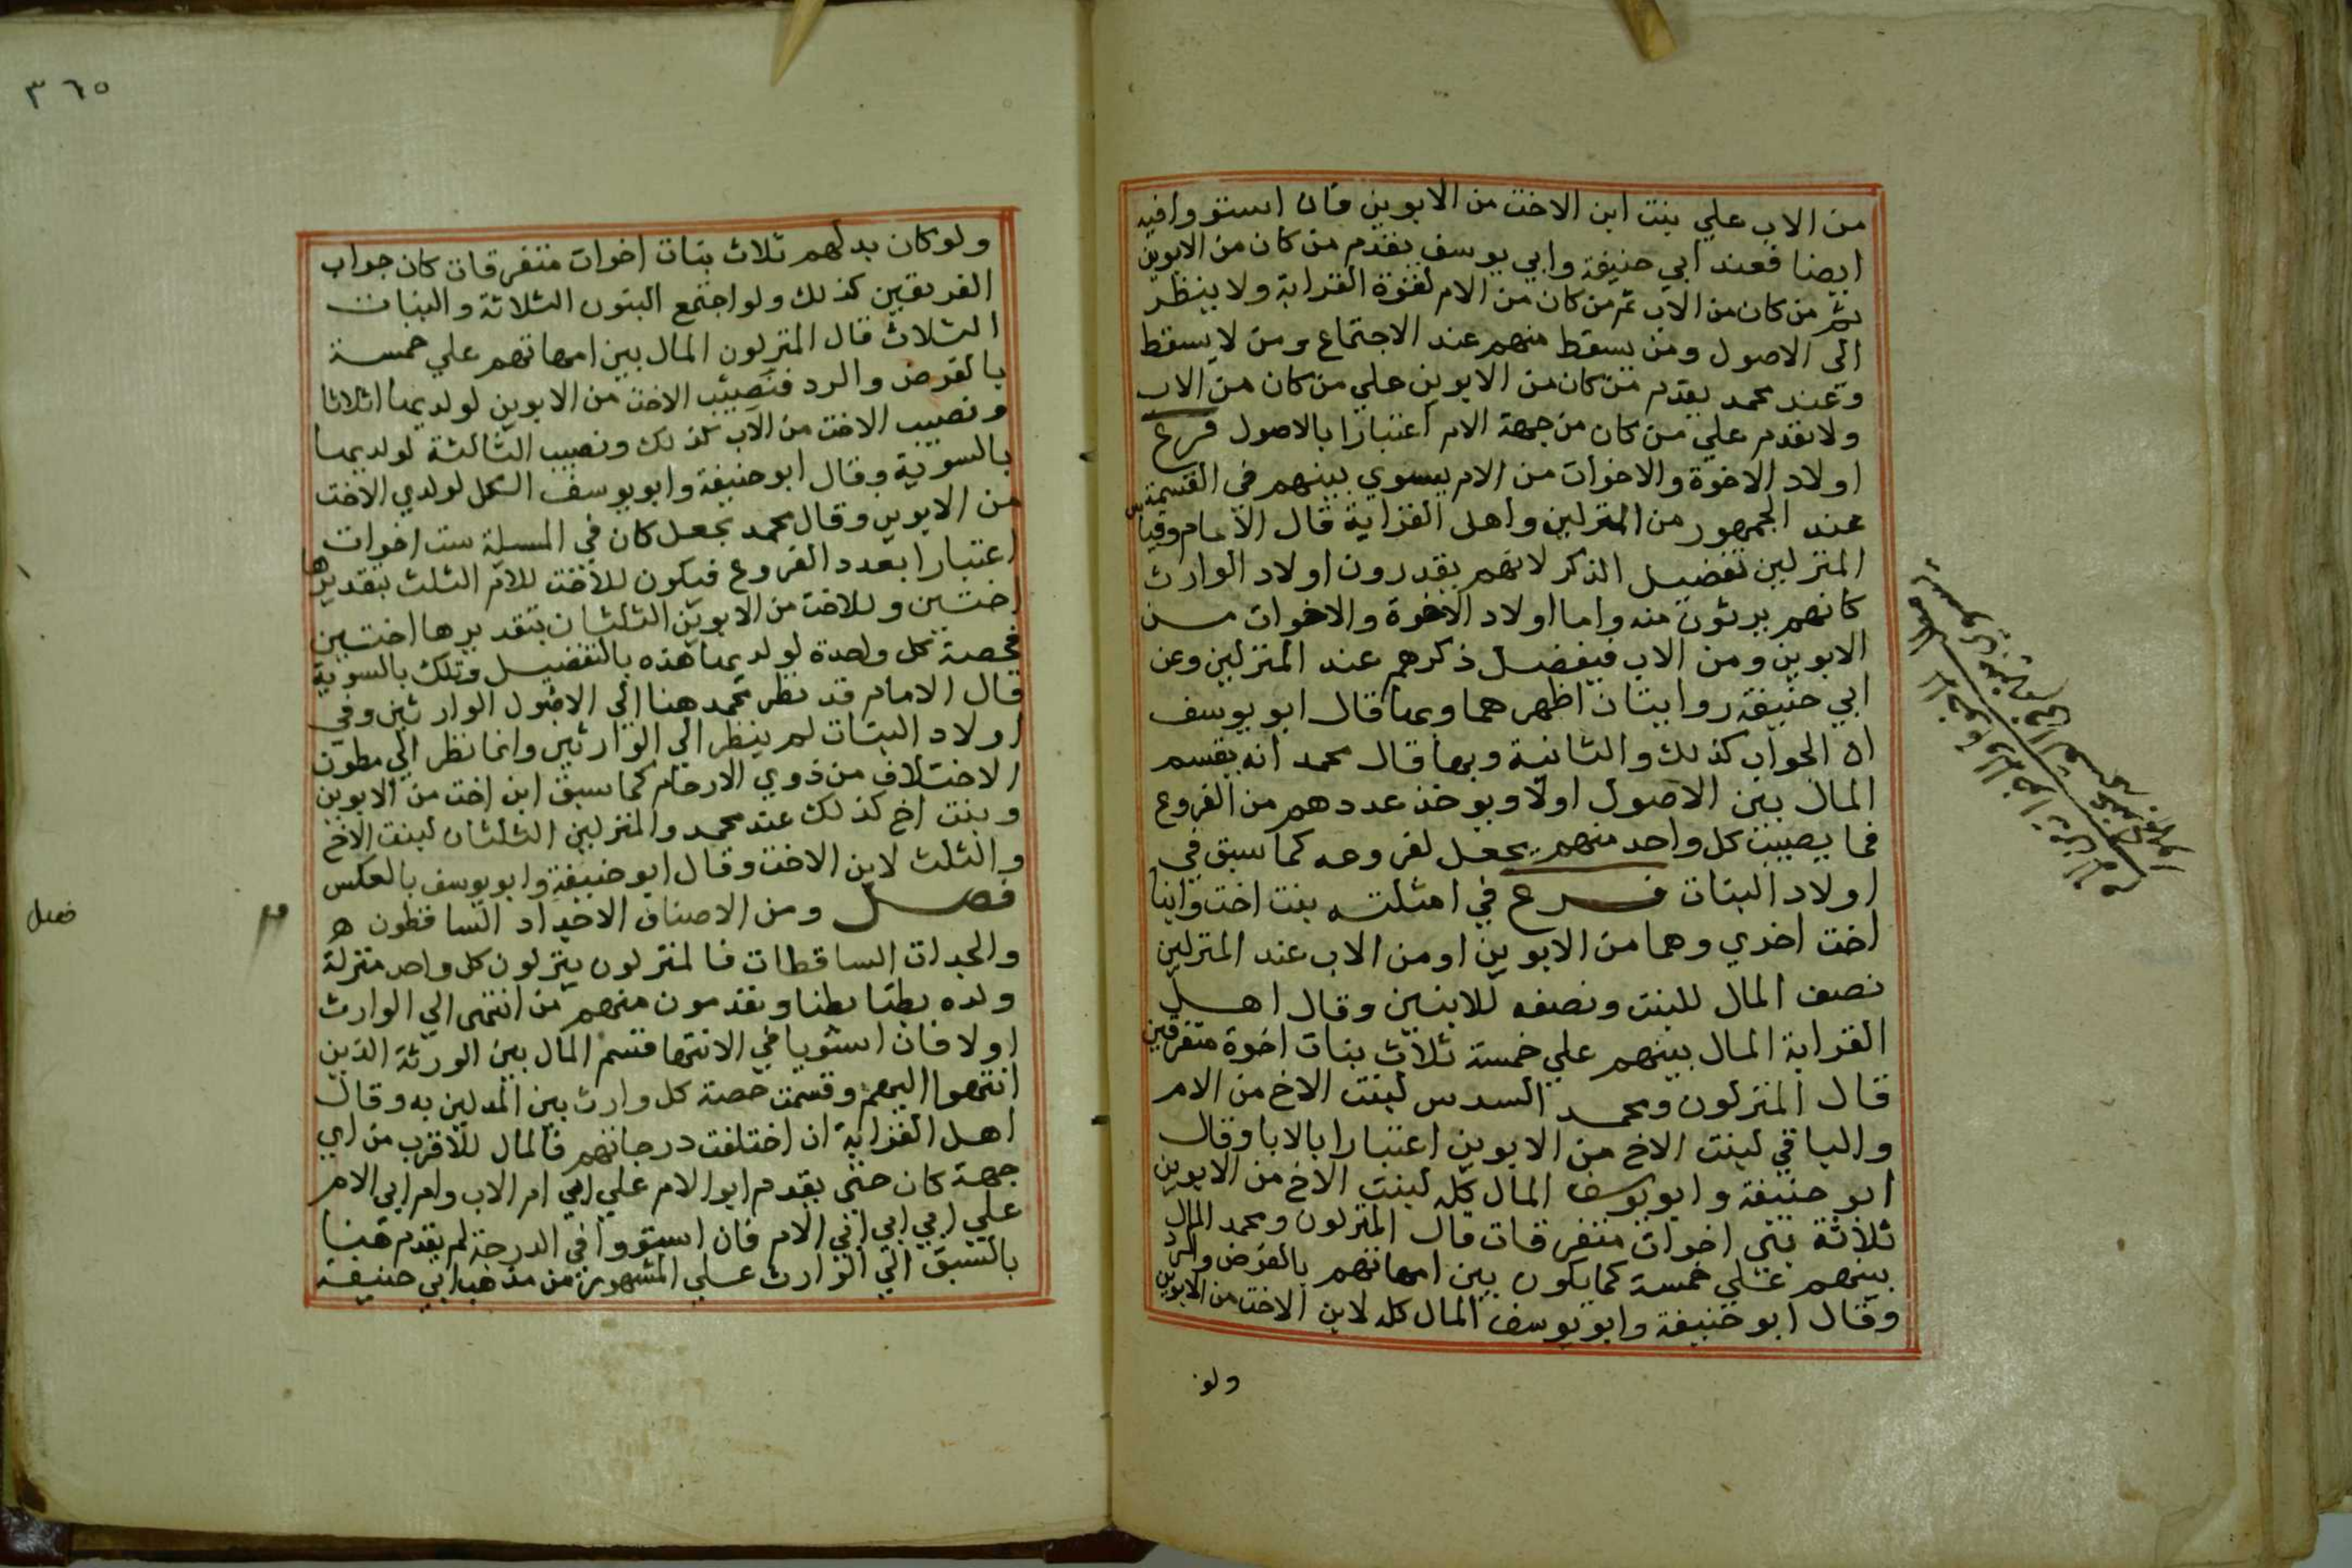 من الاب علي بنت ابن الاخت من الابوين فان استووا فيه
ايضا فعند ابي حنيفة وابي يوسف يقدم من كان من الابوين
ثم من كان من الاب ثم من كان من الام لقوة القرابة ولا ينظر
الى الاصول ومن يسقط منهم عند الاجتماع ومن لا يسقط
وعند محمد يقدم من كان من الابوين علي من كان من الاب
ولا يقدم علي من كان من جهة الام اعتبارا بالاصول فرع
اولاد الاخوة والاخوات من الام يسوي بينهم في القسمة
عند الجمهور من المنزلين واهل القرابة قال الامام وقياس
المنزلين تفضيل الذكر لانهم يقدرون اولاد الوارث
كانهم يرثون منه واما اولاد الاخوة والاخوات من
الابوين ومن الاب فيفضل ذكرهم عند المنزلين وعن
ابي حنيفة روايتان اظهرهما وبها قال ابو يوسف
ان الجواب كذلك والثانية وبها قال محمد انه يقسم
المال بين الاصول اولا ويوخذ عددهم من الفروع
فما يصيب كل واحد منهم يجعل لفروعه كما سبق في
اولاد البنات فرع في امثلته بنت اخت وابنا
اخت اخري وهما من الابوين او من الاب عند المنزلين
نصف المال للبنت ونصفه للابنين وقال اهل
القرابة المال بينهم علي خمسة ثلاث بنات اخوة متفرقين
قال المنزلون ومحمد السدس لبنت الاخ من الام
والباقي لبنت الاخ من الابوين اعتبارا بالابا وقال
ابو حنيفة وابو يوسف المال كله لبنت الاخ من الابوين
ثلاثة بني اخوات متفرقات قال المنزلون ومحمد المال
بينهم علي خمسة كما يكون بين امهاتهم بالفرض والرد
وقال ابو حنيفة وابو يوسف المال كله لابن الاخت من الابوين
ولو
٣٦٥
ولو كان بدلهم ثلاث بنات اخوات متفرقات كان جواب
الفريقين كذلك ولو اجتمع البنون الثلاثة والبنات
الثلاث قال المنزلون المال بين امهاتهم علي خمسة
بالفرض والرد فنصيب الاخت من الابوين لولديها اثلاثا
ونصيب الاخت من الاب كذلك ونصيب الثالثة لولديها
بالسوية وقال ابو حنيفة وابو يوسف الكل لولدي الاخت
من الابوين وقال محمد يجعل كان في المسلة ست اخوات
اعتبارا بعدد الفروع فيكون للاخت للام الثلث بتقديرها
اختين وللاخت من الابوين الثلثان بتقديرها اختين
فحصة كل واحدة لولديها هذه بالتفضيل وتلك بالسوية
قال الامام قد نظر محمد هنا الي الاصول الوارثين وفي
اولاد البنات لم ينظر الي الوارثين وانما نظر الي بطون
الاختلاف من ذوي الارحام كما سبق ابن اخت من الابوين
وبنت اخ كذلك عند محمد والمنزلين الثلثان لبنت الاخ
والثلث لابن الاخت وقال ابو حنيفة وابو يوسف بالعكس
فصل ومن الاصناف الاجداد الساقطون ه
فصل
والجدات الساقطات فالمنزلون ينزلون كل واحد منزلة
ولده بطنا بطنا ويقدمون منهم من انتهى الي الوارث
اولا فان استويا في الانتها قسم المال بين الورثة الذين
انتهوا اليهم وقسمت حصة كل وارث بين المدلين به وقال
اهل القرابة ان اختلفت درجاتهم فالمال للاقرب من اي
جهة كان حتي يقدم ابو الام علي ابي ام الاب وام ابي الام
علي ابي ابي ابي الام فان استووا في الدرجة لم يقدم هنا
بالسبق الي الوارث علي المشهور من مذهب ابي حنيفة